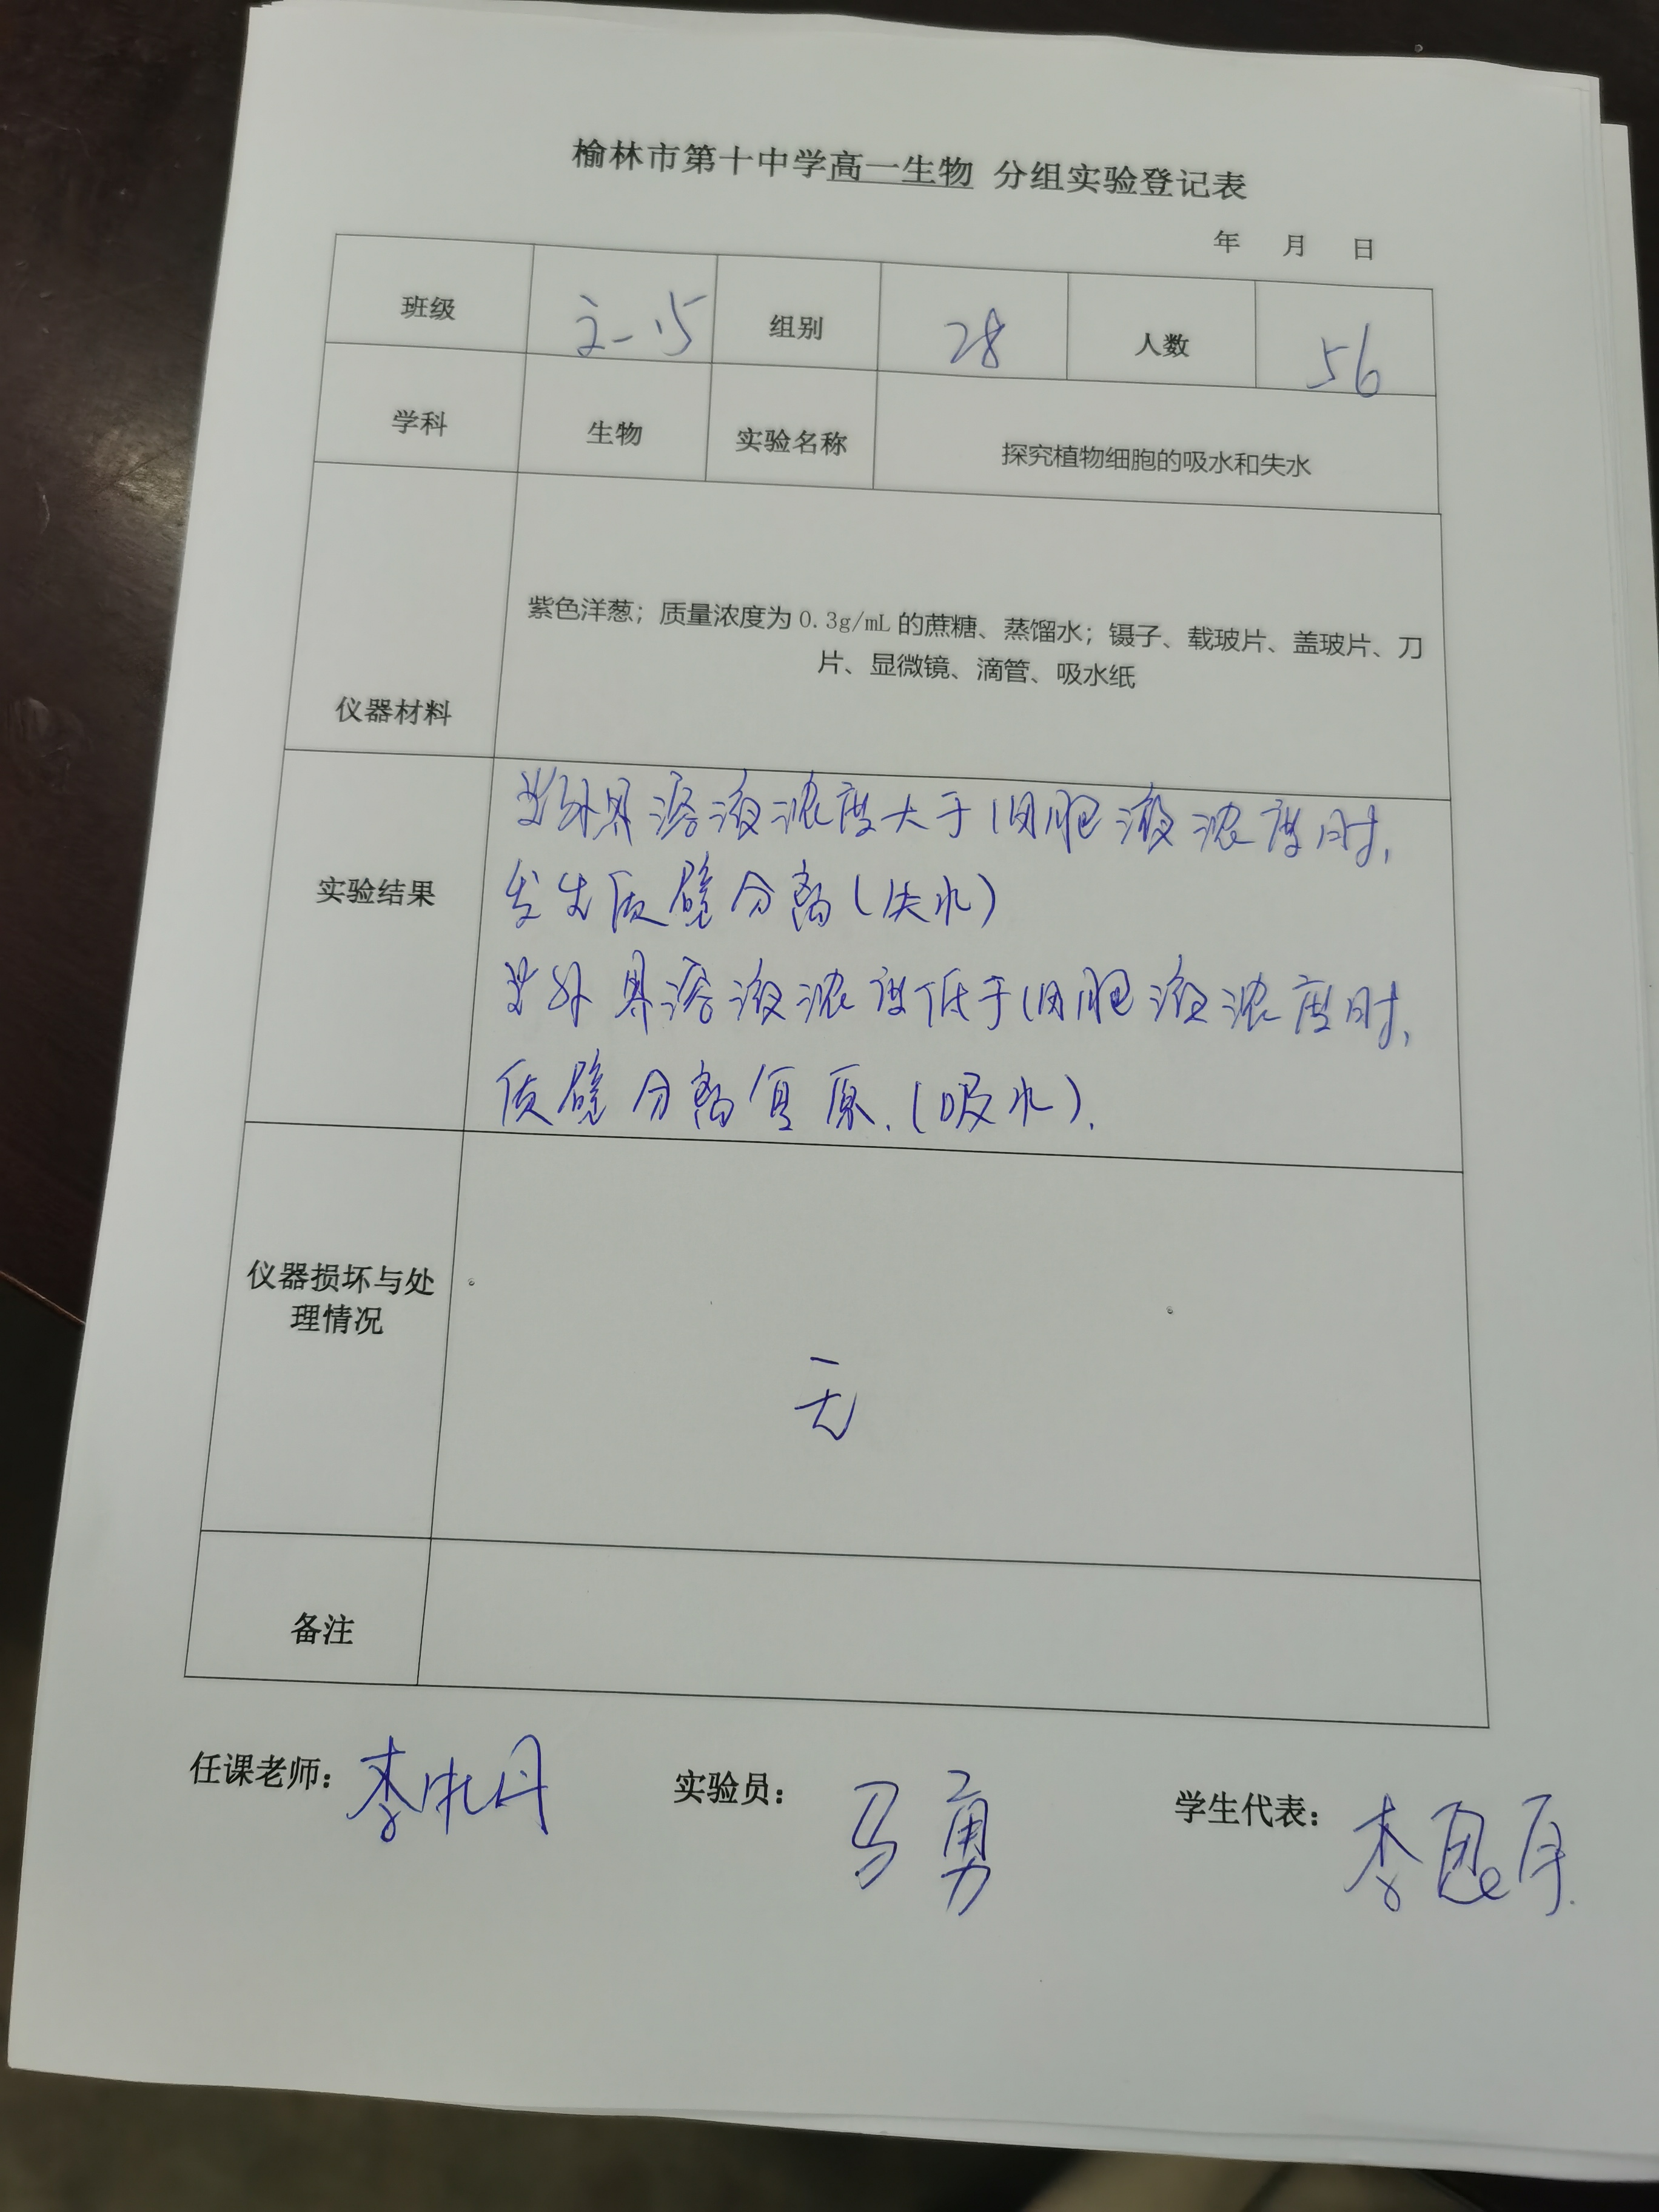 榆林市第十中学高一生物 分组实验登记表
年 月 日
班级 2-15 组别 28 人数 56
学科 生物 实验名称 探究植物细胞的吸水和失水
仪器材料
紫色洋葱；质量浓度为 0.3g/mL 的蔗糖、蒸馏水；镊子、载玻片、盖玻片、刀
片、显微镜、滴管、吸水纸
实验结果
当外界溶液浓度大于细胞液浓度时，
发生质壁分离(失水)
当外界溶液浓度低于细胞液浓度时，
质壁分离复原.(吸水).
仪器损坏与处
理情况
无
备注
任课老师： 李 丹 实验员： 马勇 学生代表： 李